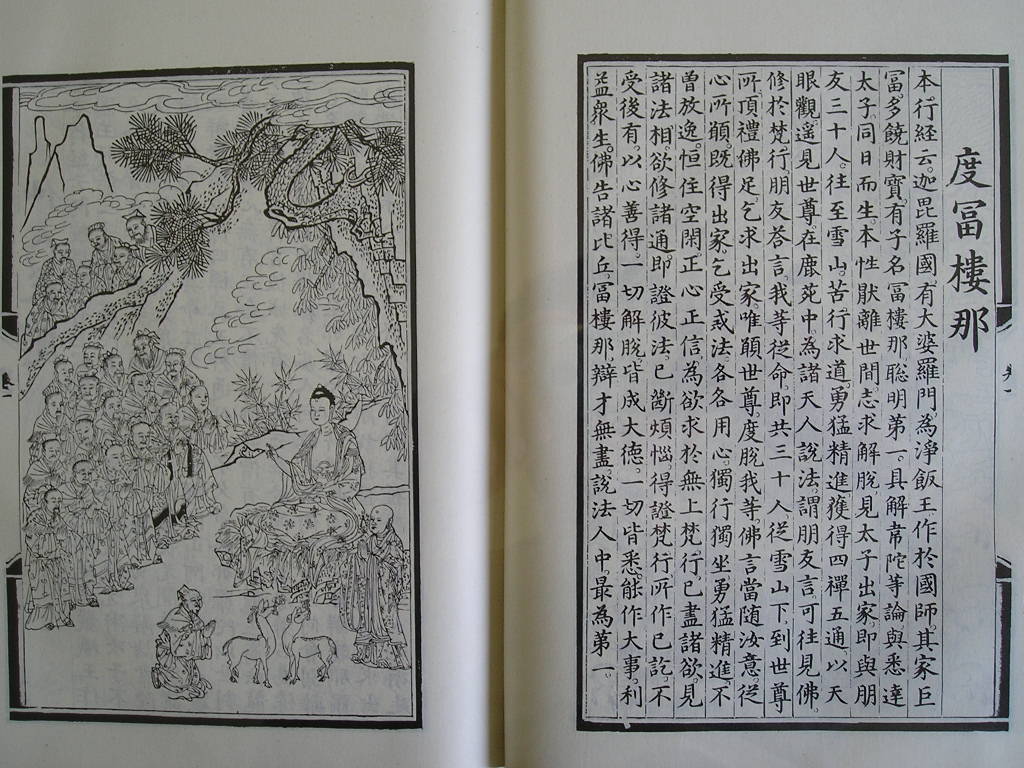 度冨樓那
本行經云。迦毘羅國。有大婆羅門。為淨飯王作於國師。其家巨
冨。多饒財寶。有子名冨樓那。聰明第一。具解韋陀等論。與悉達
太子。同日而生。本性猒離世間。志求解脫。見太子出家。即與朋
友三十人。往至雪山。苦行求道。勇猛精進。獲得四禪五通。以天
眼觀。遥見世尊。在鹿苑中。為諸天人說法。謂朋友言。可往見佛。
修於梵行。朋友荅言。我等從命。即共三十人。從雪山下。到世尊
所。頂禮佛足。乞求出家。唯願世尊。度脫我等。佛言。當随汝意。從
心所願。既得出家。乞受戒法。各各用心。獨行獨坐。勇猛精進。不
曾放逸。恒住空閑。正心正信。為欲求於無上梵行。已盡諸欲。見
諸法相。欲修諸通。即證彼法。已斷煩惱。得證梵行。所作已訖。不
受後有。以心善得。一切解脫。皆成大德。一切皆悉能作大事。利
益衆生。佛告諸比丘。冨樓那。辯才無盡。說法人中。最為第一。
卷一